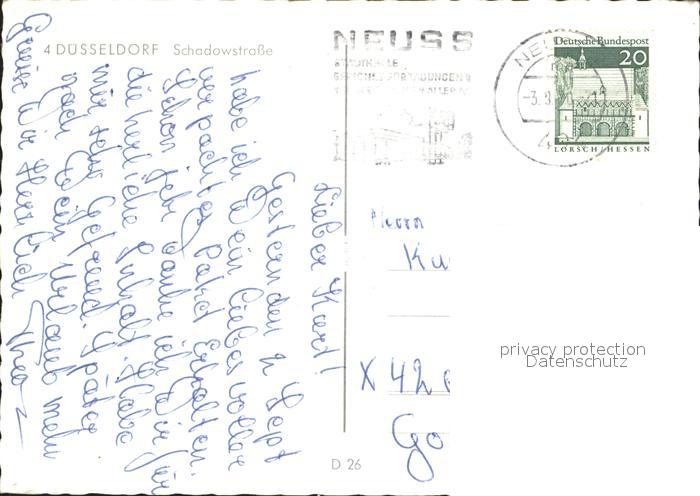 4 DÜSSELDORF Schadowstraße
NEUSS
Deutsche Bundespost
20
LORSCH/HESSEN
Lieber Kurt!
Gestern den 2 Sept
habe ich Dein lieber voller
ver pachtes Paket Erhalten.
Schon jehr danke ich Dir für
die herliche Inhalt. Habe
mir sehr Gefreud. Später
nach Dein Urlaub mehr
Grüße Dir Herzlich Theo
Herrn
Ku
X 42
Go
D 26
privacy protection
Datenschutz